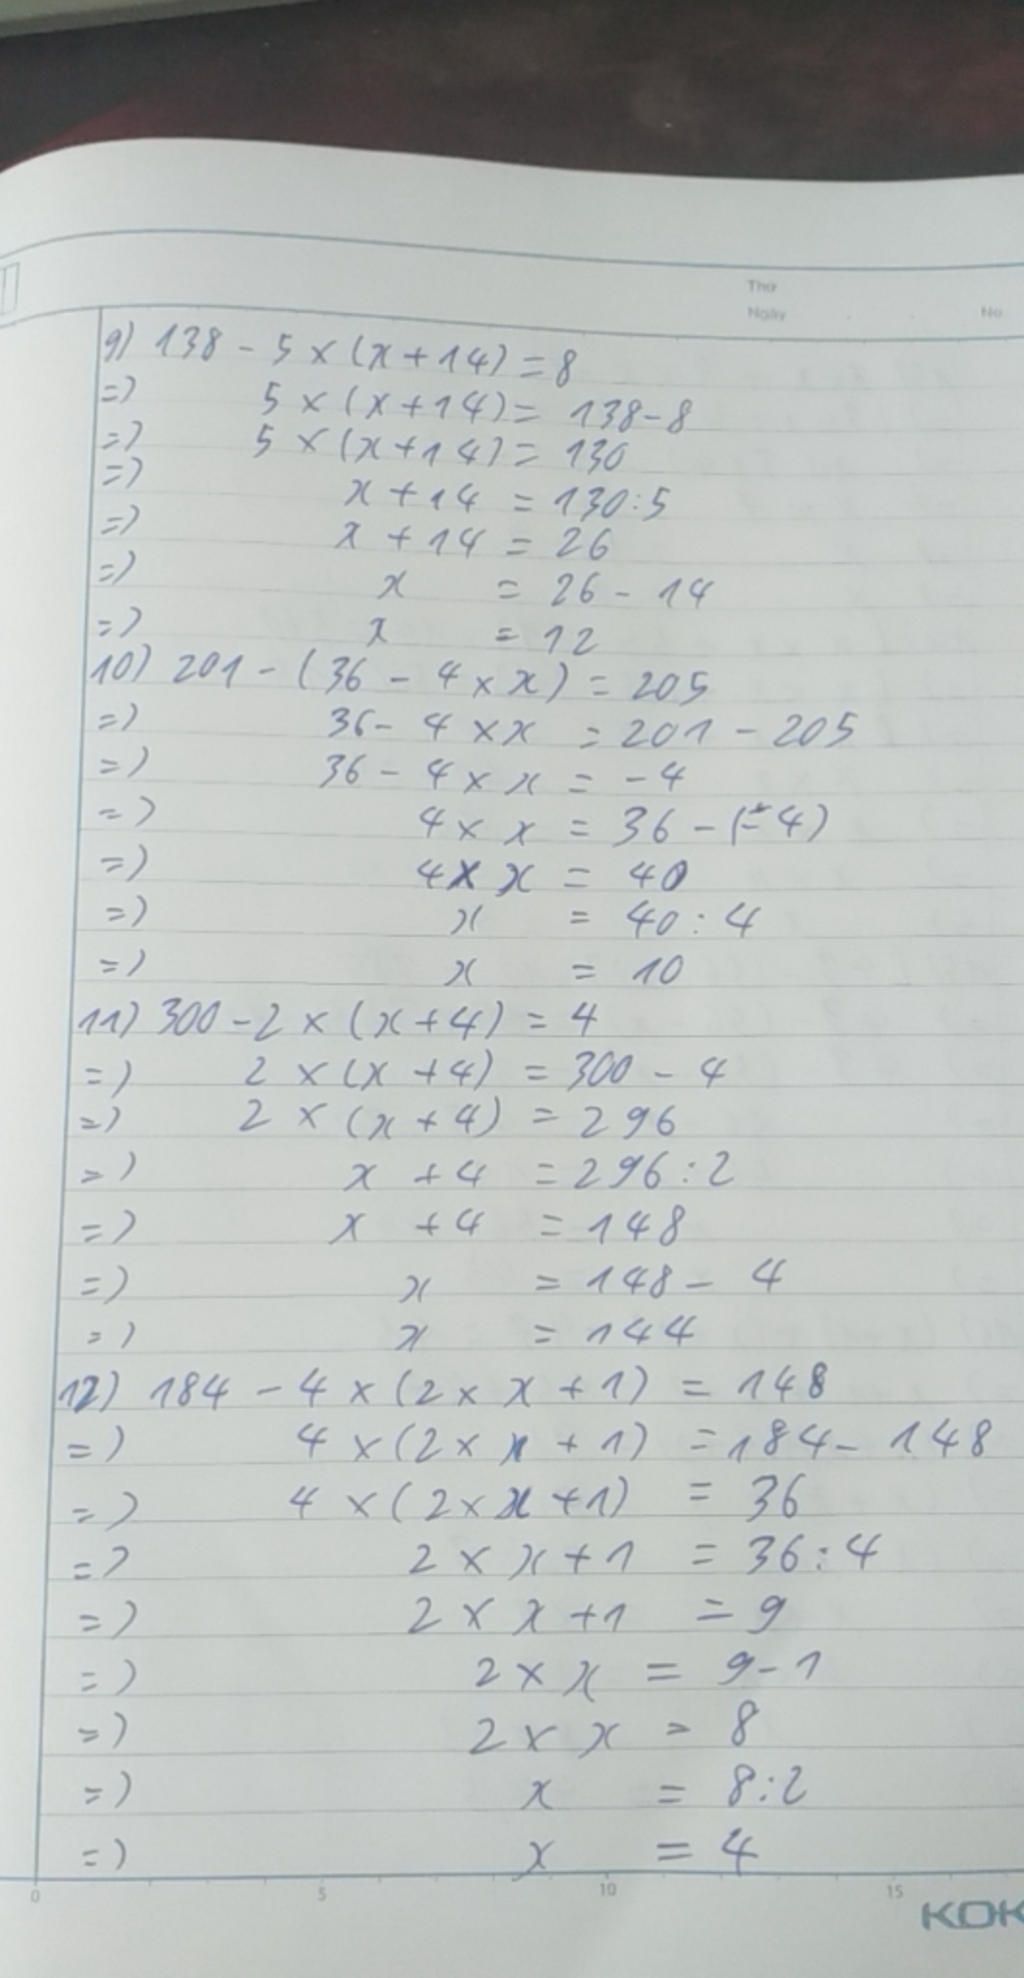 Thứ
Ngày No.
9) 138 - 5 × (x + 14) = 8
=) 5 × (x + 14) = 138 - 8
=) 5 × (x + 14) = 130
=) x + 14 = 130 : 5
=) x + 14 = 26
=) x = 26 - 14
=) x = 12
10) 201 - (36 - 4 × x) = 205
=) 36 - 4 × x = 201 - 205
=) 36 - 4 × x = - 4
=) 4 × x = 36 - (- 4)
=) 4 × x = 40
=) x = 40 : 4
=) x = 10
11) 300 - 2 × (x + 4) = 4
=) 2 × (x + 4) = 300 - 4
=) 2 × (x + 4) = 296
=) x + 4 = 296 : 2
=) x + 4 = 148
=) x = 148 - 4
=) x = 144
12) 184 - 4 × (2 × x + 1) = 148
=) 4 × (2 × x + 1) = 184 - 148
=) 4 × (2 × x + 1) = 36
=) 2 × x + 1 = 36 : 4
=) 2 × x + 1 = 9
=) 2 × x = 9 - 1
=) 2 × x = 8
=) x = 8 : 2
=) x = 4
0 5 10 15
KOK